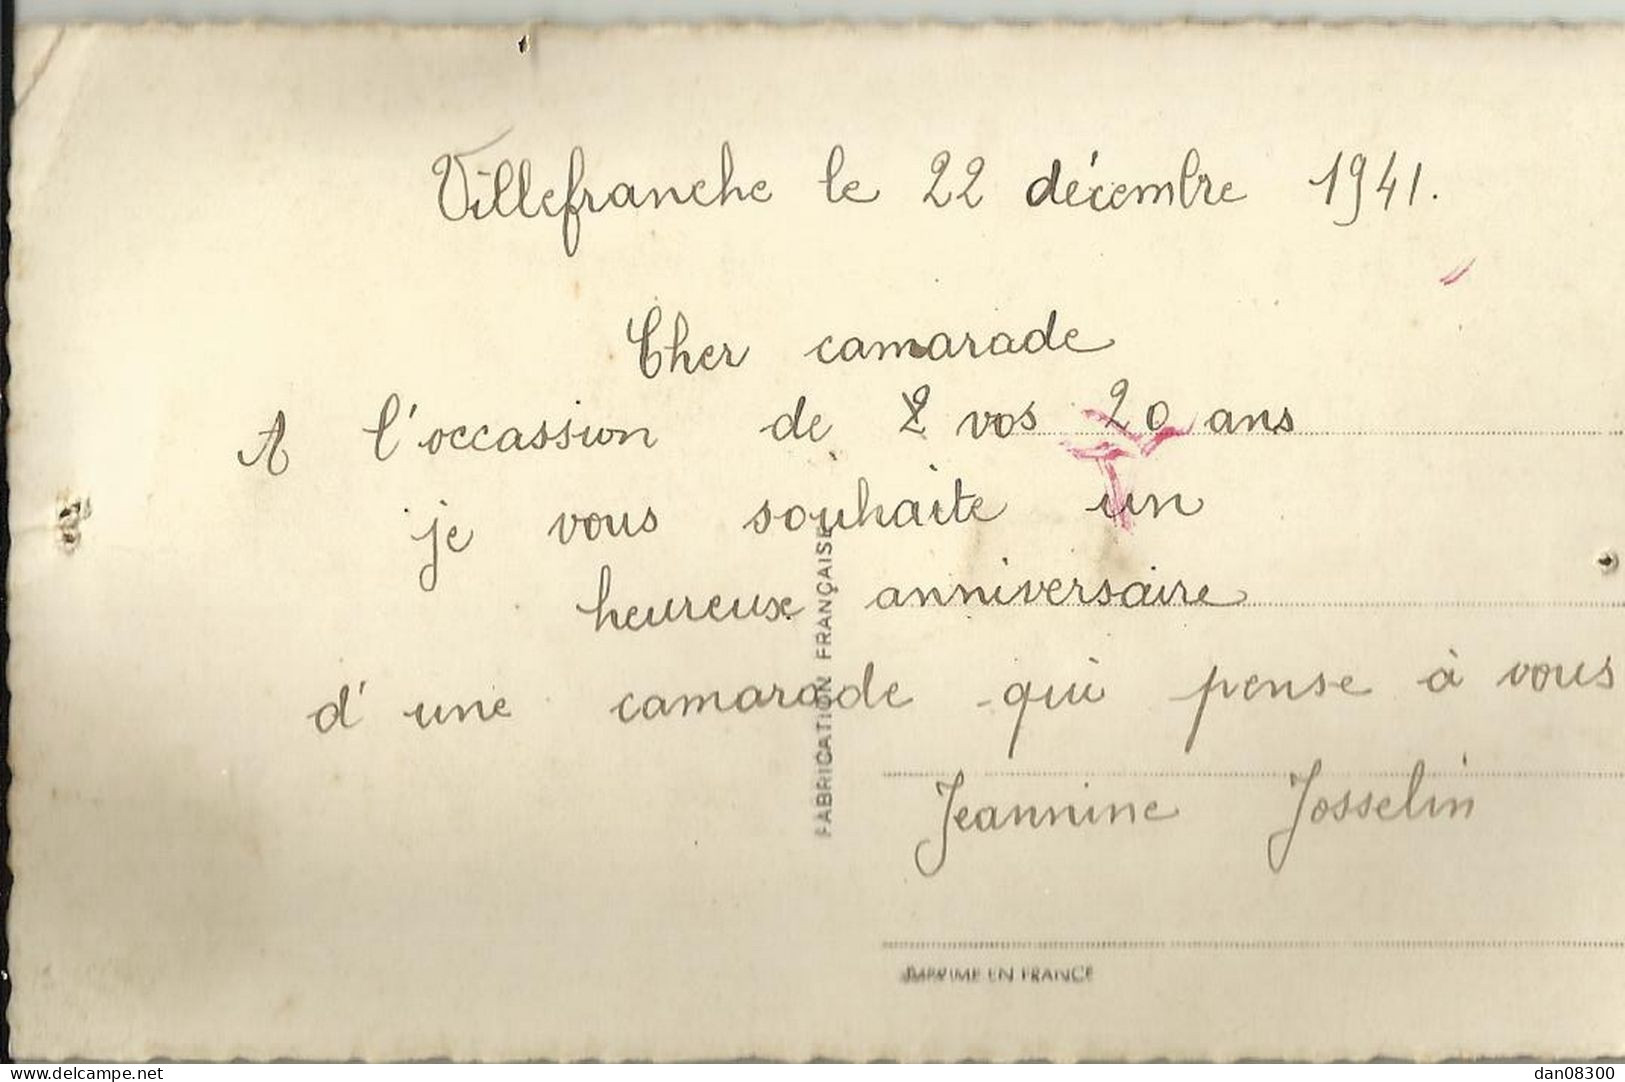 Villefranche le 22 décembre 1941.
Cher camarade
A l'occassion de 2 vos 20 ans
je vous souhaite un
heureuse anniversaire
d'une camarade qui pense à vous
Jeannine Josselin
FABRICATION FRANÇAISE
IMPRIMÉ EN FRANCE
www.delcampe.net
dan08300